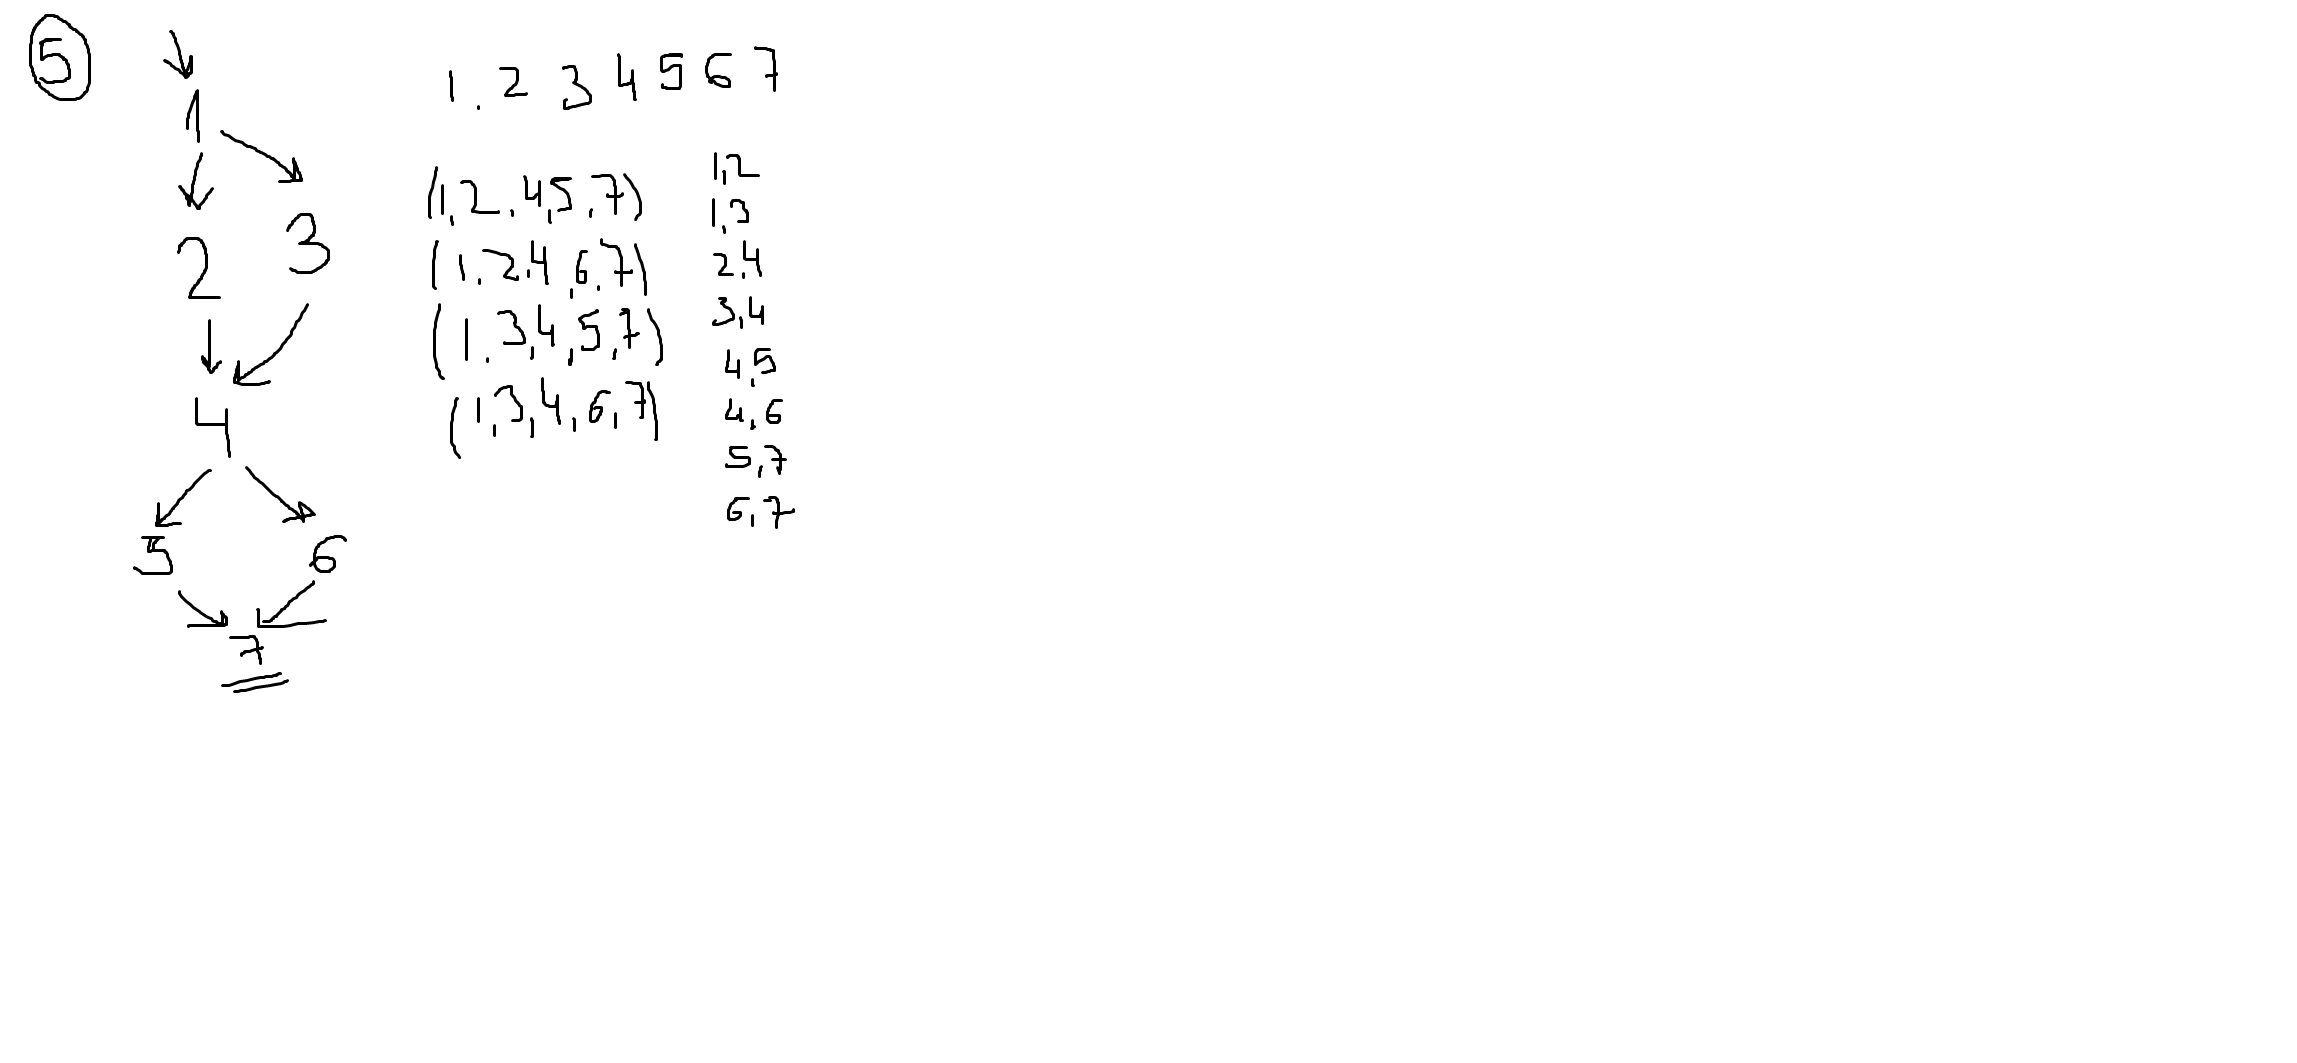 5
1
2 3
4
5 6
7
1. 2 3 4 5 6 7
(1,2.4,5,7)
(1.2.4,6.7)
(1.3,4,5,7)
(1,3,4,6,7)
1,2
1,3
2,4
3,4
4,5
4,6
5,7
6,7